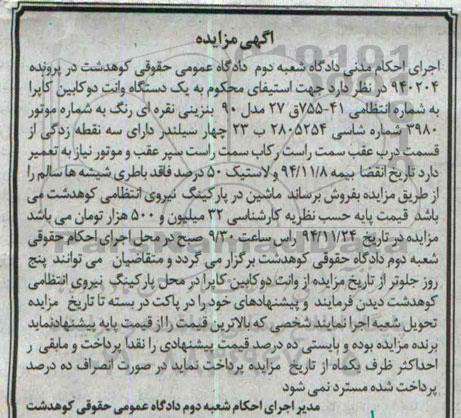 آگهی مزایده
اجرای احکام مدنی دادگاه شعبه دوم دادگاه عمومی حقوقی کوهدشت در پرونده
۹۴۰۲۰۴ در نظر دارد جهت استیفای محکوم به یک دستگاه وانت دوکابین کاپرا
به شماره انتظامی ۴۱-۷۵۵ق ۲۷ مدل ۹۰ بنزینی نقره ای رنگ به شماره موتور
۳۹۸۰ شماره شاسی ۲۸۰۵۲۵۴ ب ۲۳ چهار سیلندر دارای سه نقطه زدگی از
قسمت درب عقب سمت راست رکاب سمت راست سپر عقب و موتور نیاز به تعمیر
دارد تاریخ انقضا بیمه ۹۴/۱۱/۸ و لاستیک ۵۰ درصد فاقد باطری شیشه ها سالم را
از طریق مزایده بفروش برساند ماشین در پارکینگ نیروی انتظامی کوهدشت می
باشد قیمت پایه حسب نظریه کارشناسی ۳۲ میلیون و ۵۰۰ هزار تومان می باشد
مزایده در تاریخ ۹۴/۱۱/۲۴ راس ساعت ۹/۳۰ صبح در محل اجرای احکام حقوقی
شعبه دوم دادگاه حقوقی کوهدشت برگزار می گردد و متقاضیان می توانند پنج
روز جلوتر از تاریخ مزایده از وانت دوکابین کاپرا در محل پارکینگ نیروی انتظامی
کوهدشت دیدن فرمایند و پیشنهادهای خود را در پاکت در بسته تا تاریخ مزایده
تحویل شعبه اجرا نمایند شخصی که بالاترین قیمت را از قیمت پایه پیشنهادنماید
برنده مزایده بوده و بایستی ده درصد قیمت پیشنهادی را نقدا پرداخت و مابقی ر
احداکثر ظرف یکماه از تاریخ مزایده پرداخت نماید در صورت انصراف ده درصد
پرداخت شده مسترد نمی شود
مدیر اجرای احکام شعبه دوم دادگاه عمومی حقوقی کوهدشت